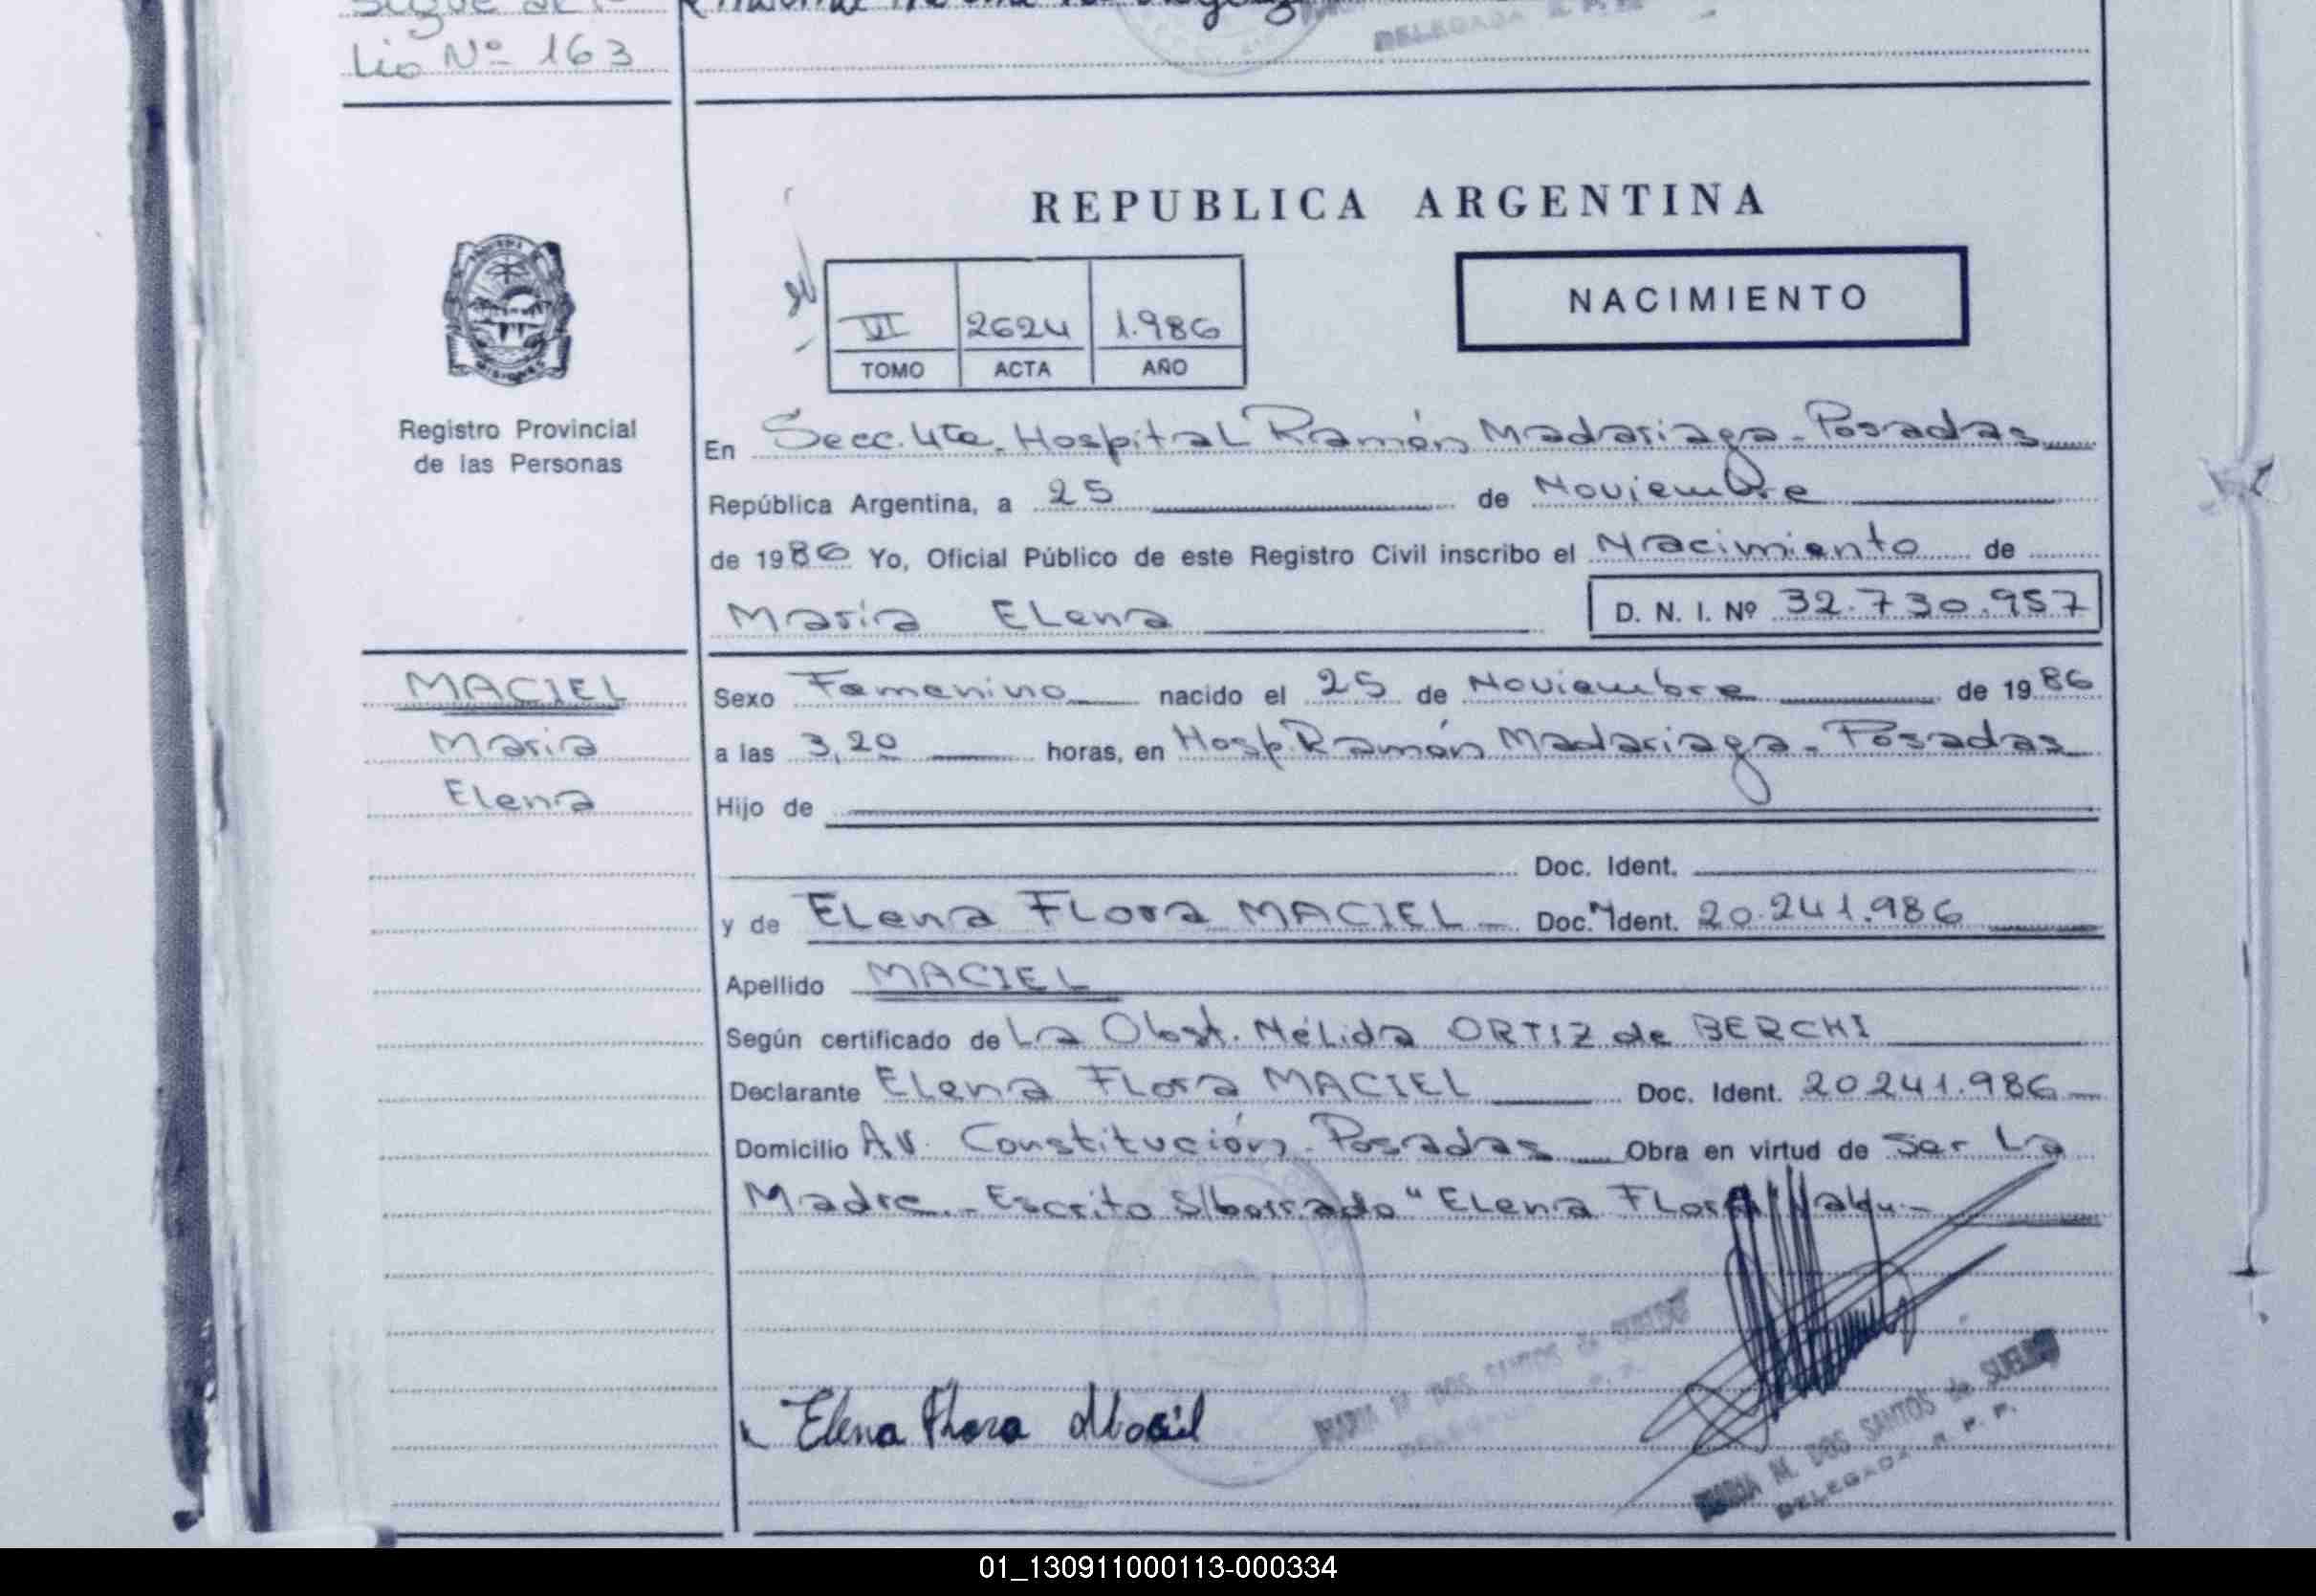 Lio Nº 163
DELEGADA R. P. P.
REPUBLICA ARGENTINA
NACIMIENTO
VI 2624 1.986
TOMO ACTA AÑO
MISIONES
Registro Provincial
de las Personas
En Secc. 4ta. Hospital Ramón Madariaga - Posadas
República Argentina, a 25 de Noviembre
de 1986 Yo, Oficial Público de este Registro Civil inscribo el Nacimiento de
María Elena
D. N. I. Nº 32.730.957
MACIEL
María
Elena
Sexo Femenino nacido el 25 de Noviembre de 1986
a las 3,20 horas, en Hosp. Ramón Madariaga - Posadas
Hijo de
Doc. Ident.
y de Elena Flora MACIEL - Doc. Ident. 20.241.986
Apellido MACIEL
Según certificado de La Obst. Nélida ORTIZ de BERCHI
Declarante Elena Flora MACIEL Doc. Ident. 20241.986
Domicilio Av. Constitución - Posadas Obra en virtud de Ser La
Madre. - Escrito S/borrado "Elena Flora"
Elena Flora
MARIA M. DOS SANTOS de SUELDO
DELEGADA R. P. P.
MARIA M. DOS SANTOS de SUELDO
DELEGADA R. P. P.
01_130911000113-000334